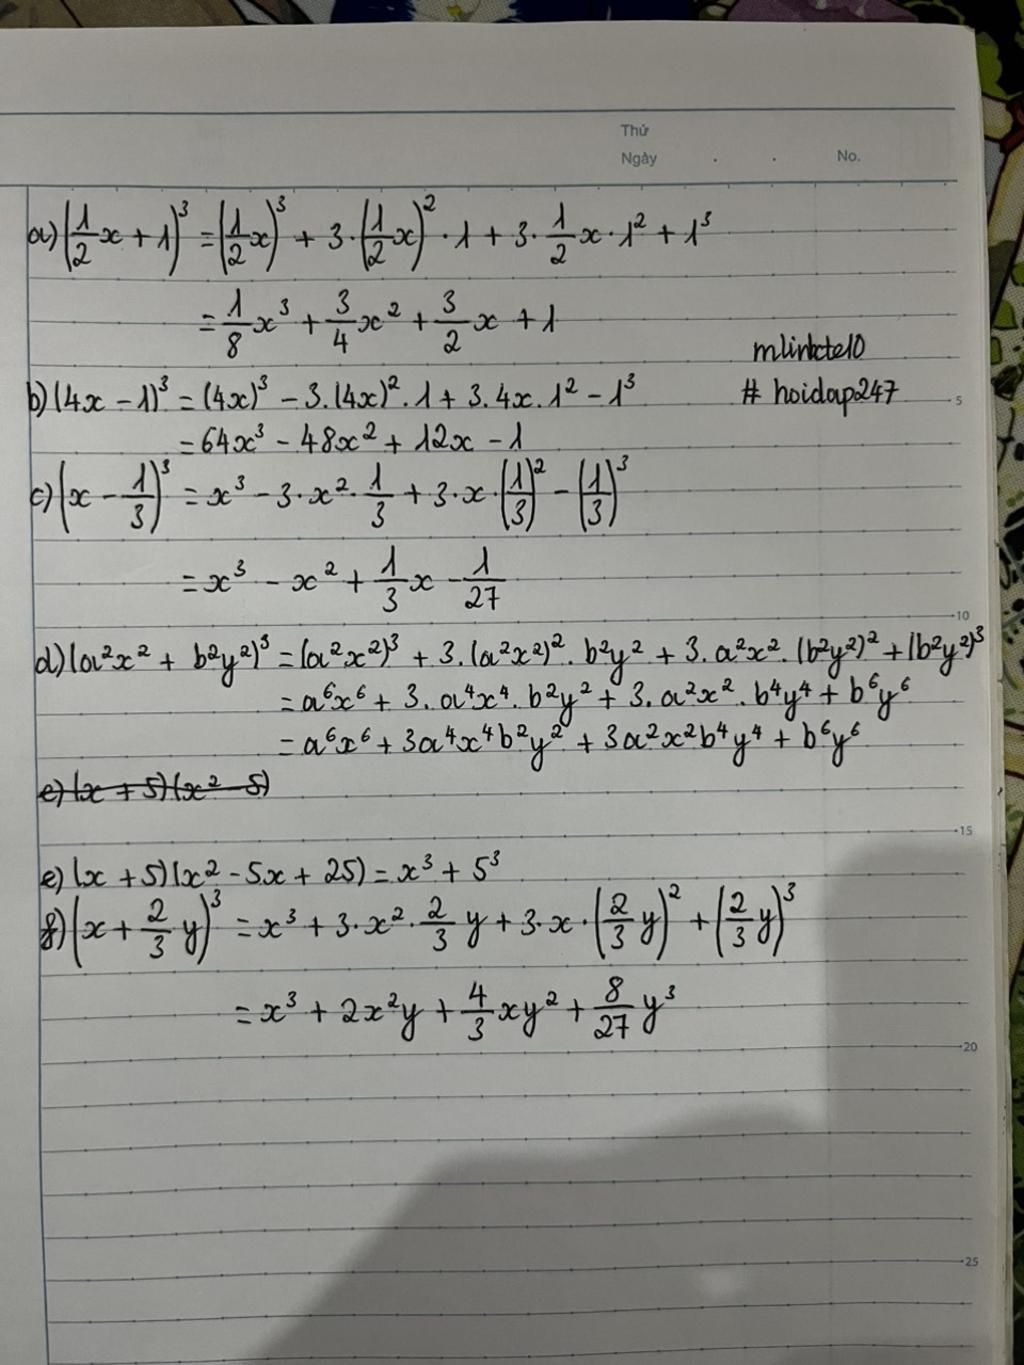 Thứ
Ngày . . No.
a) (1/2 x + 1)³ = (1/2 x)³ + 3 · (1/2 x)² · 1 + 3 · 1/2 x · 1² + 1³
= 1/8 x³ + 3/4 x² + 3/2 x + 1
mlinhcte10
b) (4x − 1)³ = (4x)³ − 3.(4x)².1 + 3.4x.1² − 1³
# hoidap247
5
= 64x³ − 48x² + 12x − 1
c) (x − 1/3)³ = x³ − 3 · x² · 1/3 + 3 · x · (1/3)² − (1/3)³
= x³ − x² + 1/3 x − 1/27
10
d) (a²x² + b²y²)³ = (a²x²)³ + 3.(a²x²)².b²y² + 3.a²x².(b²y²)² + (b²y²)³
= a⁶x⁶ + 3.a⁴x⁴.b²y² + 3.a²x².b⁴y⁴ + b⁶y⁶
= a⁶x⁶ + 3a⁴x⁴b²y² + 3a²x²b⁴y⁴ + b⁶y⁶
e) (x + 5)(x² − 5)
15
e) (x + 5)(x² − 5x + 25) = x³ + 5³
f) (x + 2/3 y)³ = x³ + 3 · x² · 2/3 y + 3 · x · (2/3 y)² + (2/3 y)³
= x³ + 2x²y + 4/3 xy² + 8/27 y³
20
25